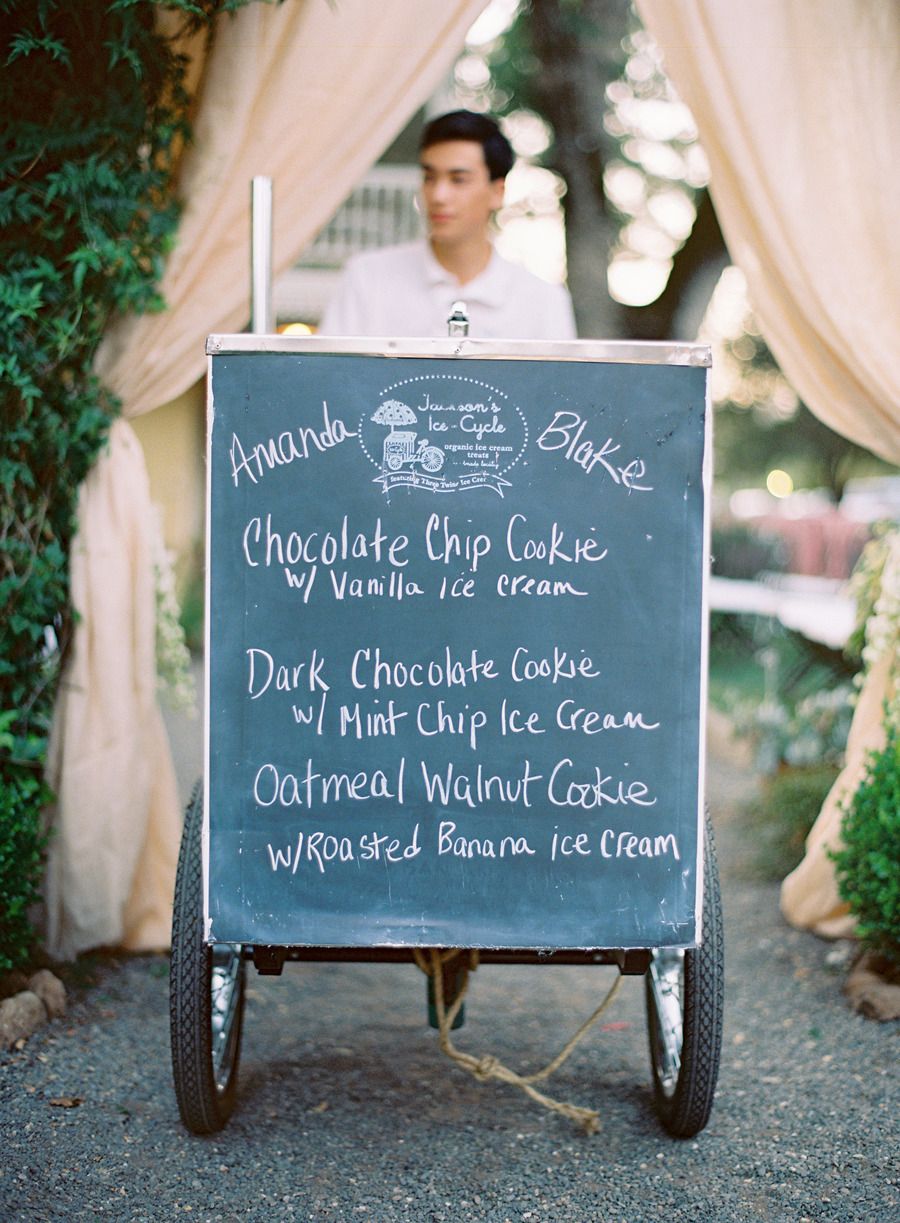 Amanda
Jackson's
Ice-Cycle
organic ice cream
treats
made locally
featuring Three Twins Ice Cream
Blake
Chocolate Chip Cookie
w/ Vanilla ice cream
Dark Chocolate Cookie
w/ Mint Chip Ice Cream
Oatmeal Walnut Cookie
w/Roasted Banana ice cream